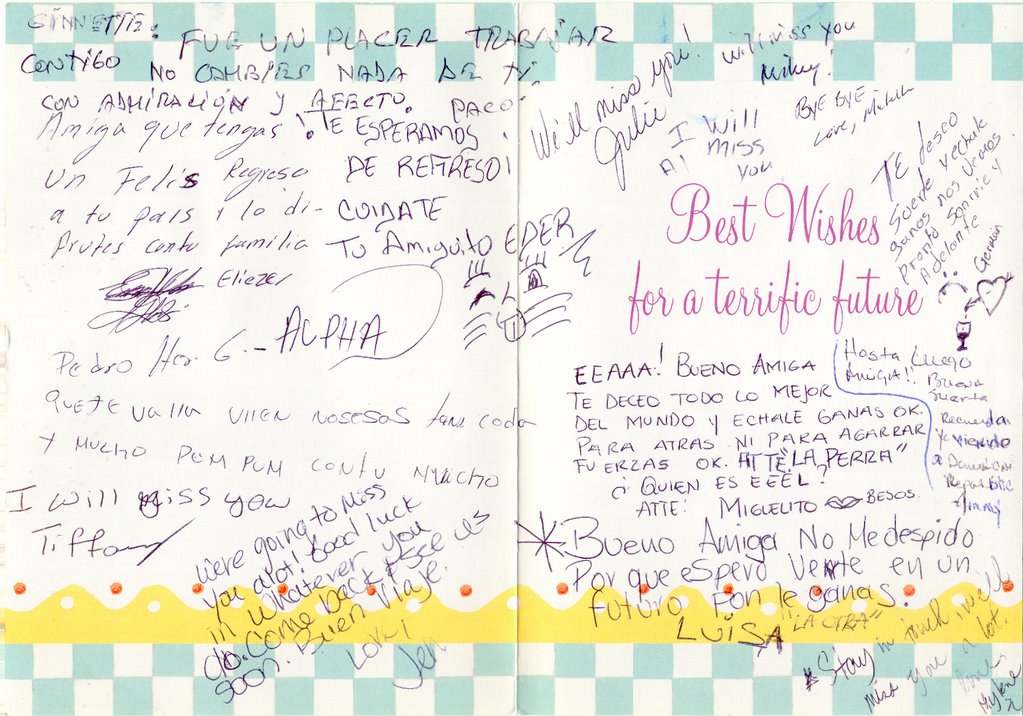 GINNETTE:
FUE UN PLACER TRABAJAR
CONTIGO NO CAMBIES NADA DE TI.
CON ADMIRACIÓN Y AFECTO. PACO
Amiga que tengas
un Felis Regreso
a tu pais y lo di-
frutes contu familia
Eliezer
! TE ESPERAMOS
DE REGRESO!
CUIDATE
TU AMIGUITO EDER
ALPHA
Pedro Her. G.-
QUETE VALLA VIIEN NOSESAS tan coda
Y MUCHO PUM PUM CONTU MUNCHO
I will miss you
Tiffany
We're going to miss
you alot! Good luck
in whatever you
do. Come back & see us
soon. Buen Viaje.
Love,
Jen
We'll miss you!
Julie
will miss you
Mikey!
I will
miss
you
Al
BYE BYE
Love,
TE deseo
Suerte y echale
Ganas nos vemos
pronto Sonrie y
Adelante
German
Best Wishes
for a terrific future
EEAAA! BUENO AMIGA
TE DECEO TODO LO MEJOR
DEL MUNDO Y ECHALE GANAS OK.
PARA ATRAS NI PARA AGARRAR
FUERZAS OK. ATTE "LA PERRA"
¿QUIEN ES EEÉL?
ATTE: MIGUELITO BESOS.
Hasta Luego
AMIGA!! Buena
Suerta
Recuerdan
Republic
Jimmy
Bueno Amiga No Medespido
Porque espero verte en un
futuro Ponle ganas.
LUISA "LA OTRA"
Stay in touch, will
miss you a lot.
Love -
Mylene